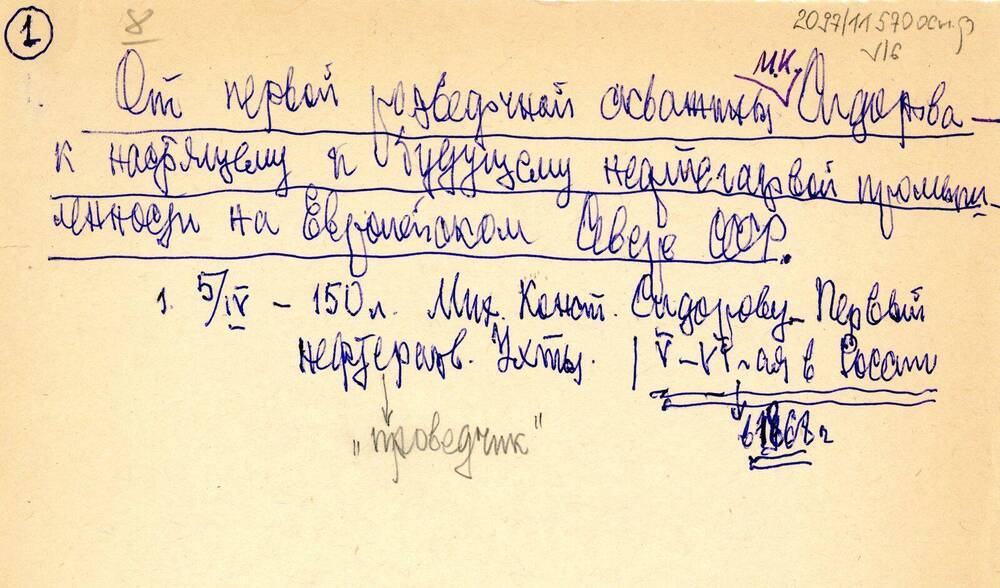 1
8
2097/11570осн.ф
V/6
От первой разведочной скважины М.К. Сидорова –
к настоящему и будущему нефтегазовой промыш-
ленности на Европейском Севере СССР.
1. 5/IV – 150 л. Мих. Конст. Сидорову. Первый
нефтеразв. Ухты. | V–VI-ая в России
"проводчик"
в 1868 г